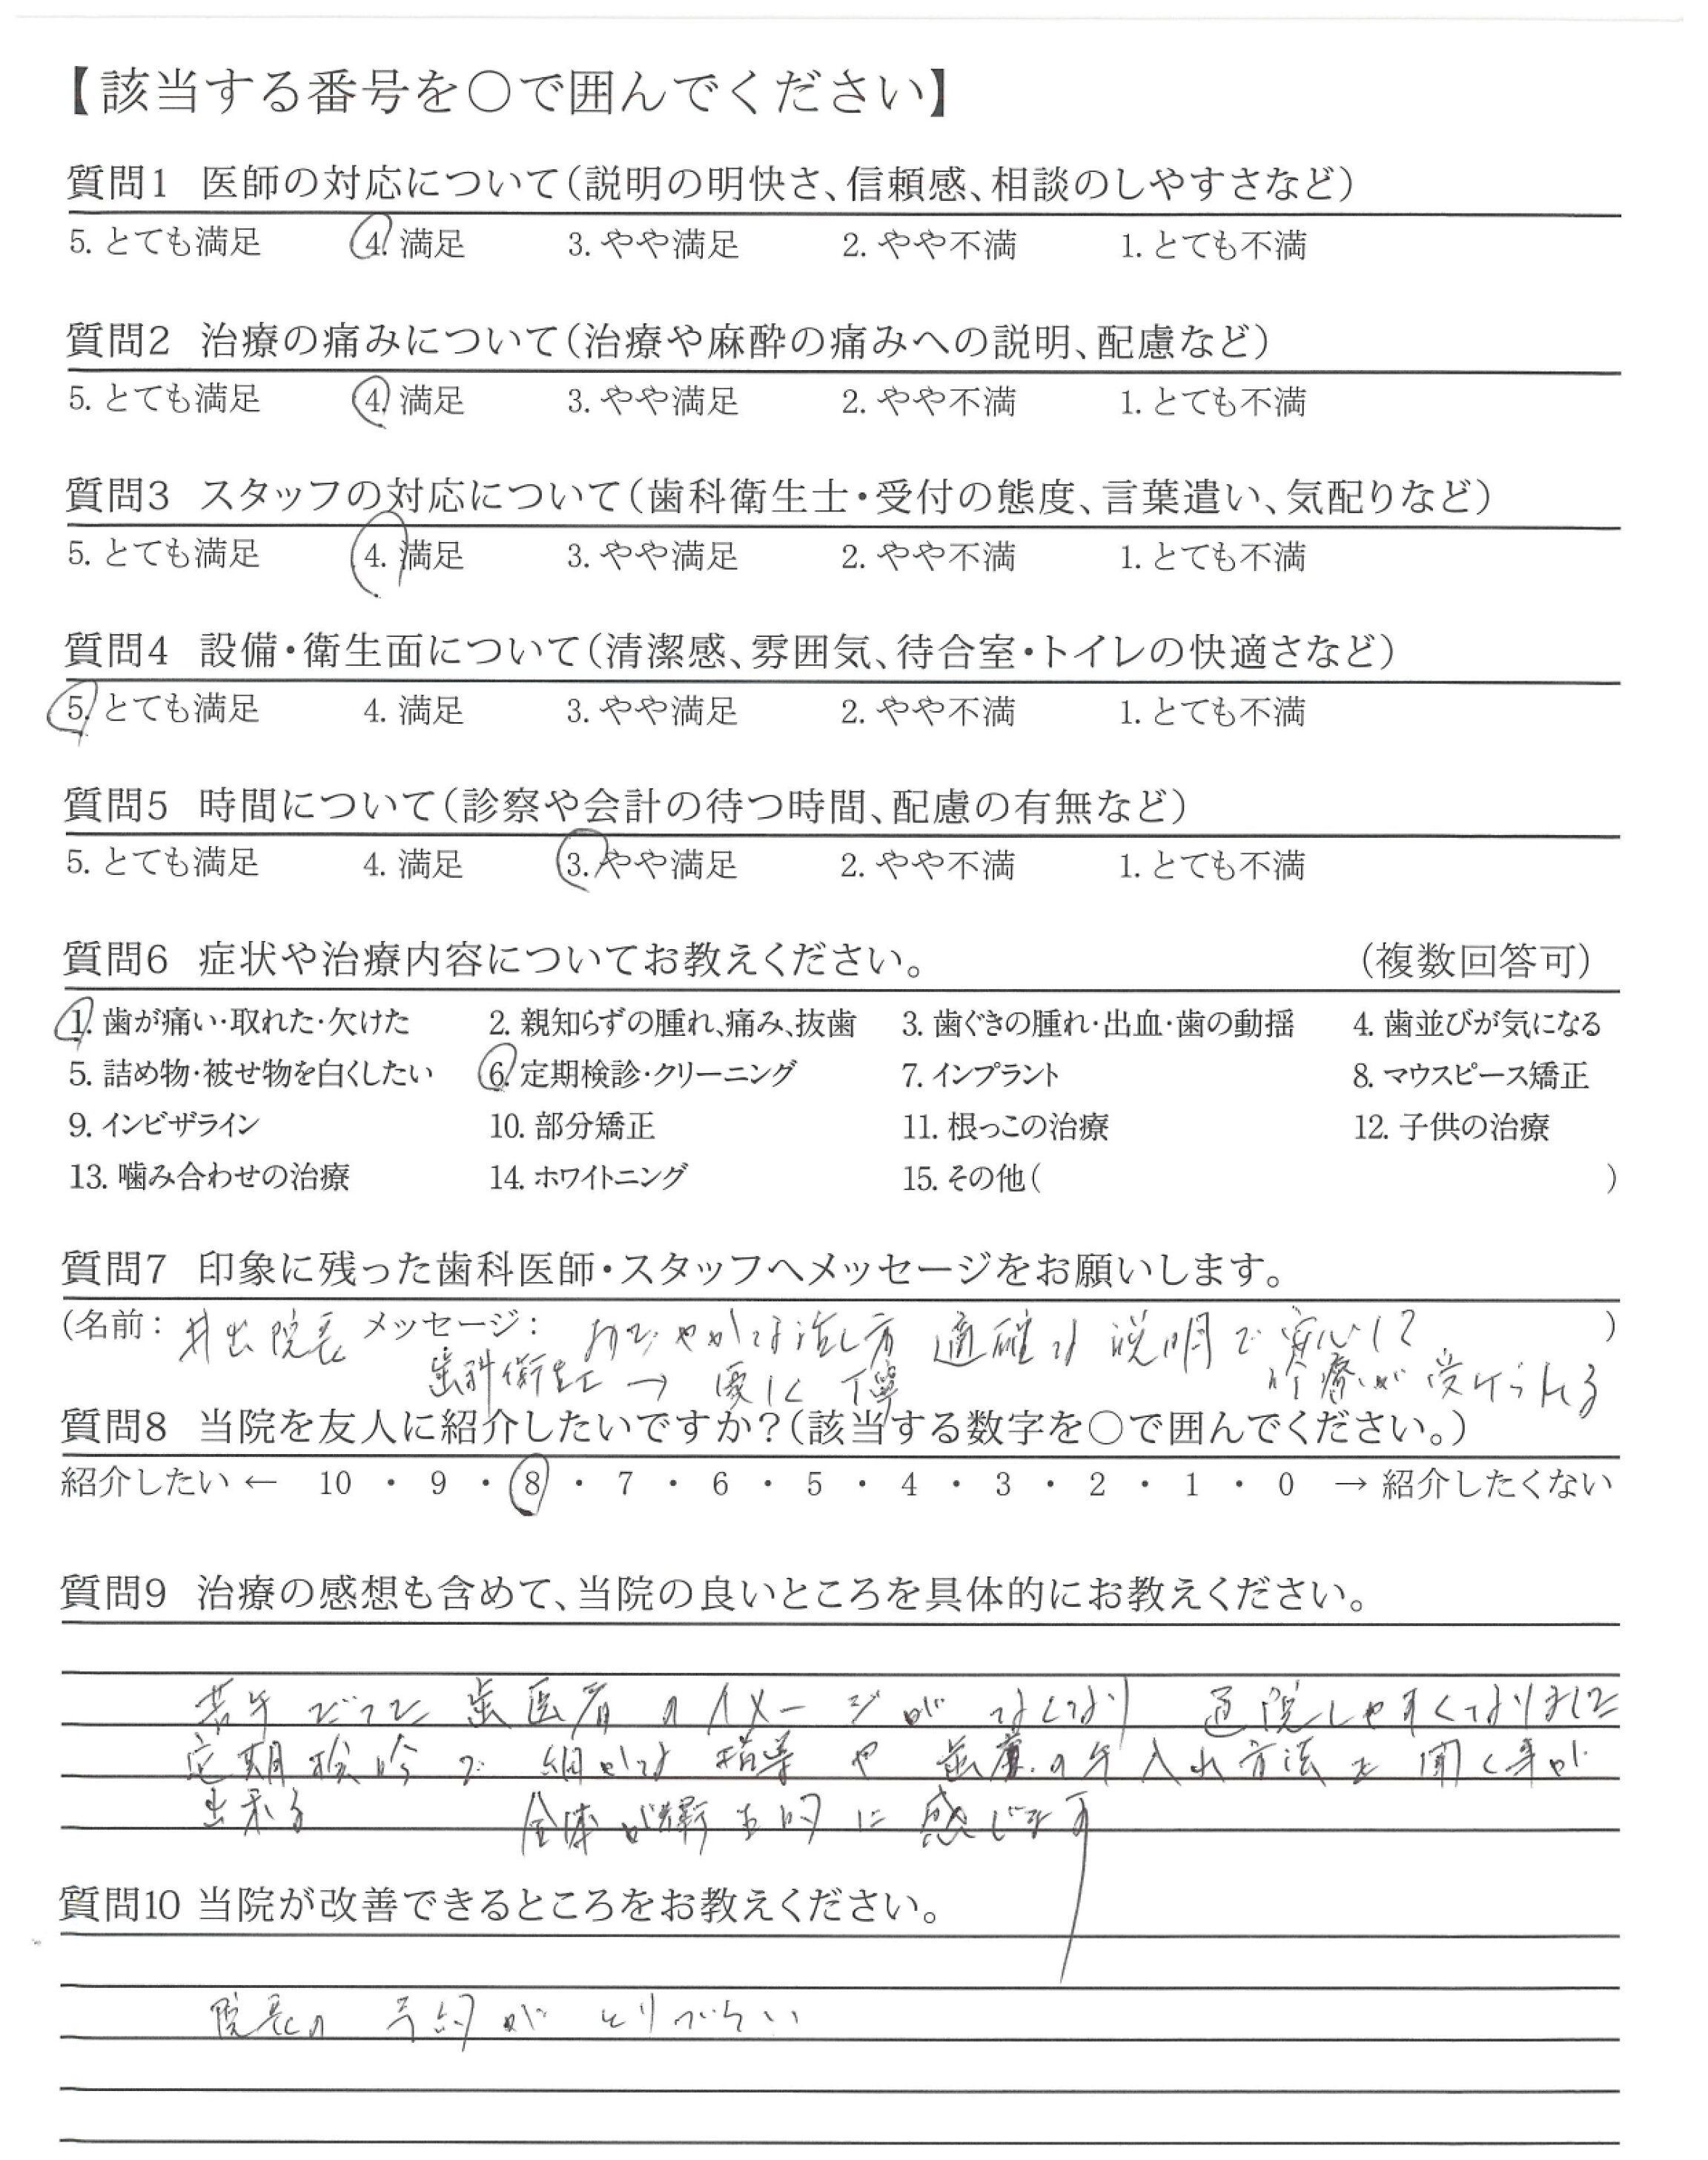 【該当する番号を○で囲んでください】
質問1 医師の対応について(説明の明快さ、信頼感、相談のしやすさなど)
5. とても満足 4. 満足 3. やや満足 2. やや不満 1. とても不満
質問2 治療の痛みについて(治療や麻酔の痛みへの説明、配慮など)
5. とても満足 4. 満足 3. やや満足 2. やや不満 1. とても不満
質問3 スタッフの対応について(歯科衛生士・受付の態度、言葉遣い、気配りなど)
5. とても満足 4. 満足 3. やや満足 2. やや不満 1. とても不満
質問4 設備・衛生面について(清潔感、雰囲気、待合室・トイレの快適さなど)
5. とても満足 4. 満足 3. やや満足 2. やや不満 1. とても不満
質問5 時間について(診察や会計の待つ時間、配慮の有無など)
5. とても満足 4. 満足 3. やや満足 2. やや不満 1. とても不満
質問6 症状や治療内容についてお教えください。 (複数回答可)
1. 歯が痛い・取れた・欠けた 2. 親知らずの腫れ、痛み、抜歯 3. 歯ぐきの腫れ・出血・歯の動揺 4. 歯並びが気になる
5. 詰め物・被せ物を白くしたい 6. 定期検診・クリーニング 7. インプラント 8. マウスピース矯正
9. インビザライン 10. 部分矯正 11. 根っこの治療 12. 子供の治療
13. 噛み合わせの治療 14. ホワイトニング 15. その他( )
質問7 印象に残った歯科医師・スタッフへメッセージをお願いします。
(名前: 井出院長 メッセージ: おだやかな話し方 適確な説明で安心して )
歯科衛生士 → 優しく丁寧 診療が受けられる
質問8 当院を友人に紹介したいですか?(該当する数字を○で囲んでください。)
紹介したい ← 10 ・ 9 ・ 8 ・ 7 ・ 6 ・ 5 ・ 4 ・ 3 ・ 2 ・ 1 ・ 0 → 紹介したくない
質問9 治療の感想も含めて、当院の良いところを具体的にお教えください。
苦手だった歯医者のイメージがなくなり 通院しやすくなりました
定期検診で細かな指導や歯の手入れ方法を聞く事が
出来る 全体が衛生的に感じます
質問10 当院が改善できるところをお教えください。
院長の予約がとりづらい